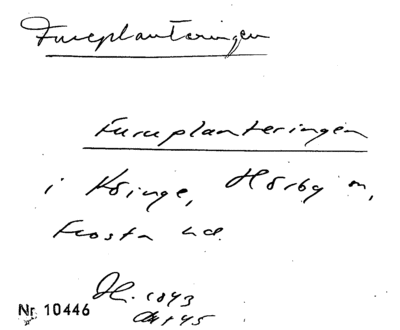 Furuplanteringen
Furuplanteringen
i Köinge, Hörby sn,
Frosta hd.
Nr 10446